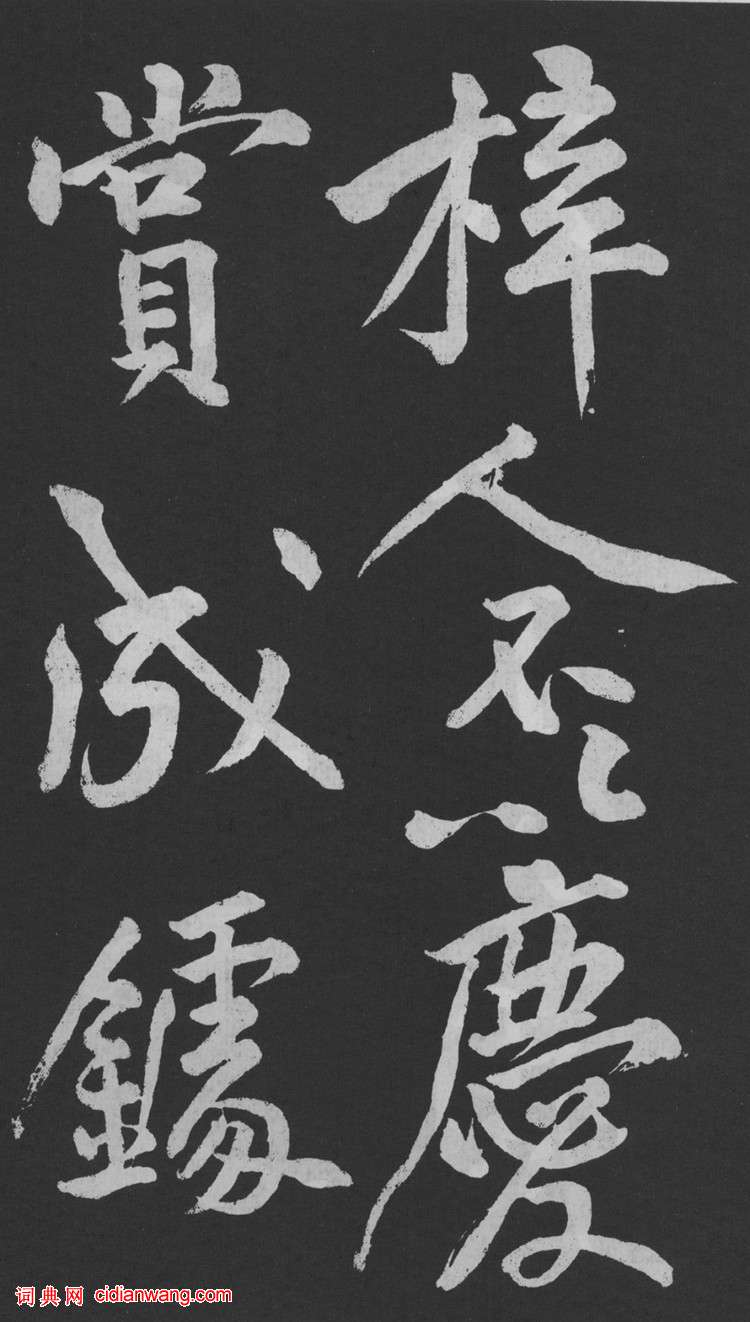 梓人慶
賞成鐻
词典网 cidianwang.com